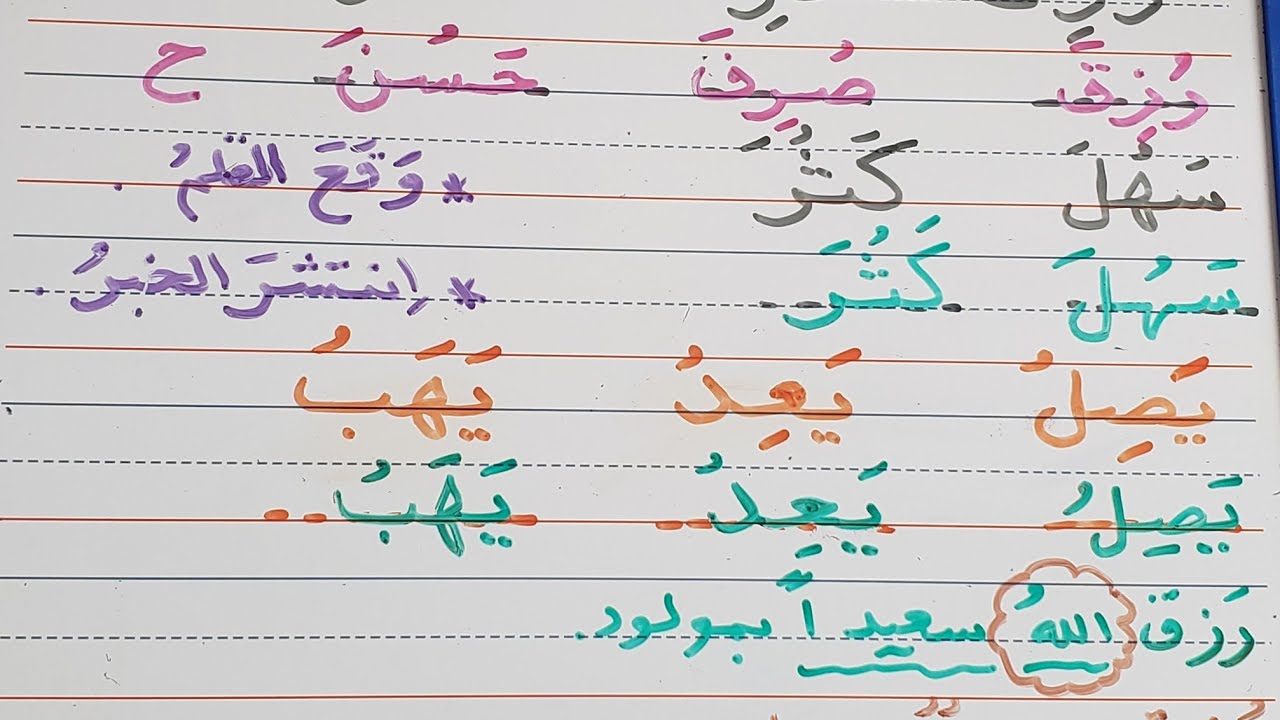 رُزِقَ صُرِفَ حَسُنَ ح
سَهُلَ كَثُرَ * وَقَعَ القلمُ .
سَهُلَ كَثُرَ * اِنتشرَ الخبرُ .
يَصِلُ يَعِدُ يَهَبُ
يَصِلُ يَعِدُ يَهَبُ
رَزقَ اللهُ سعيداً بمولود.